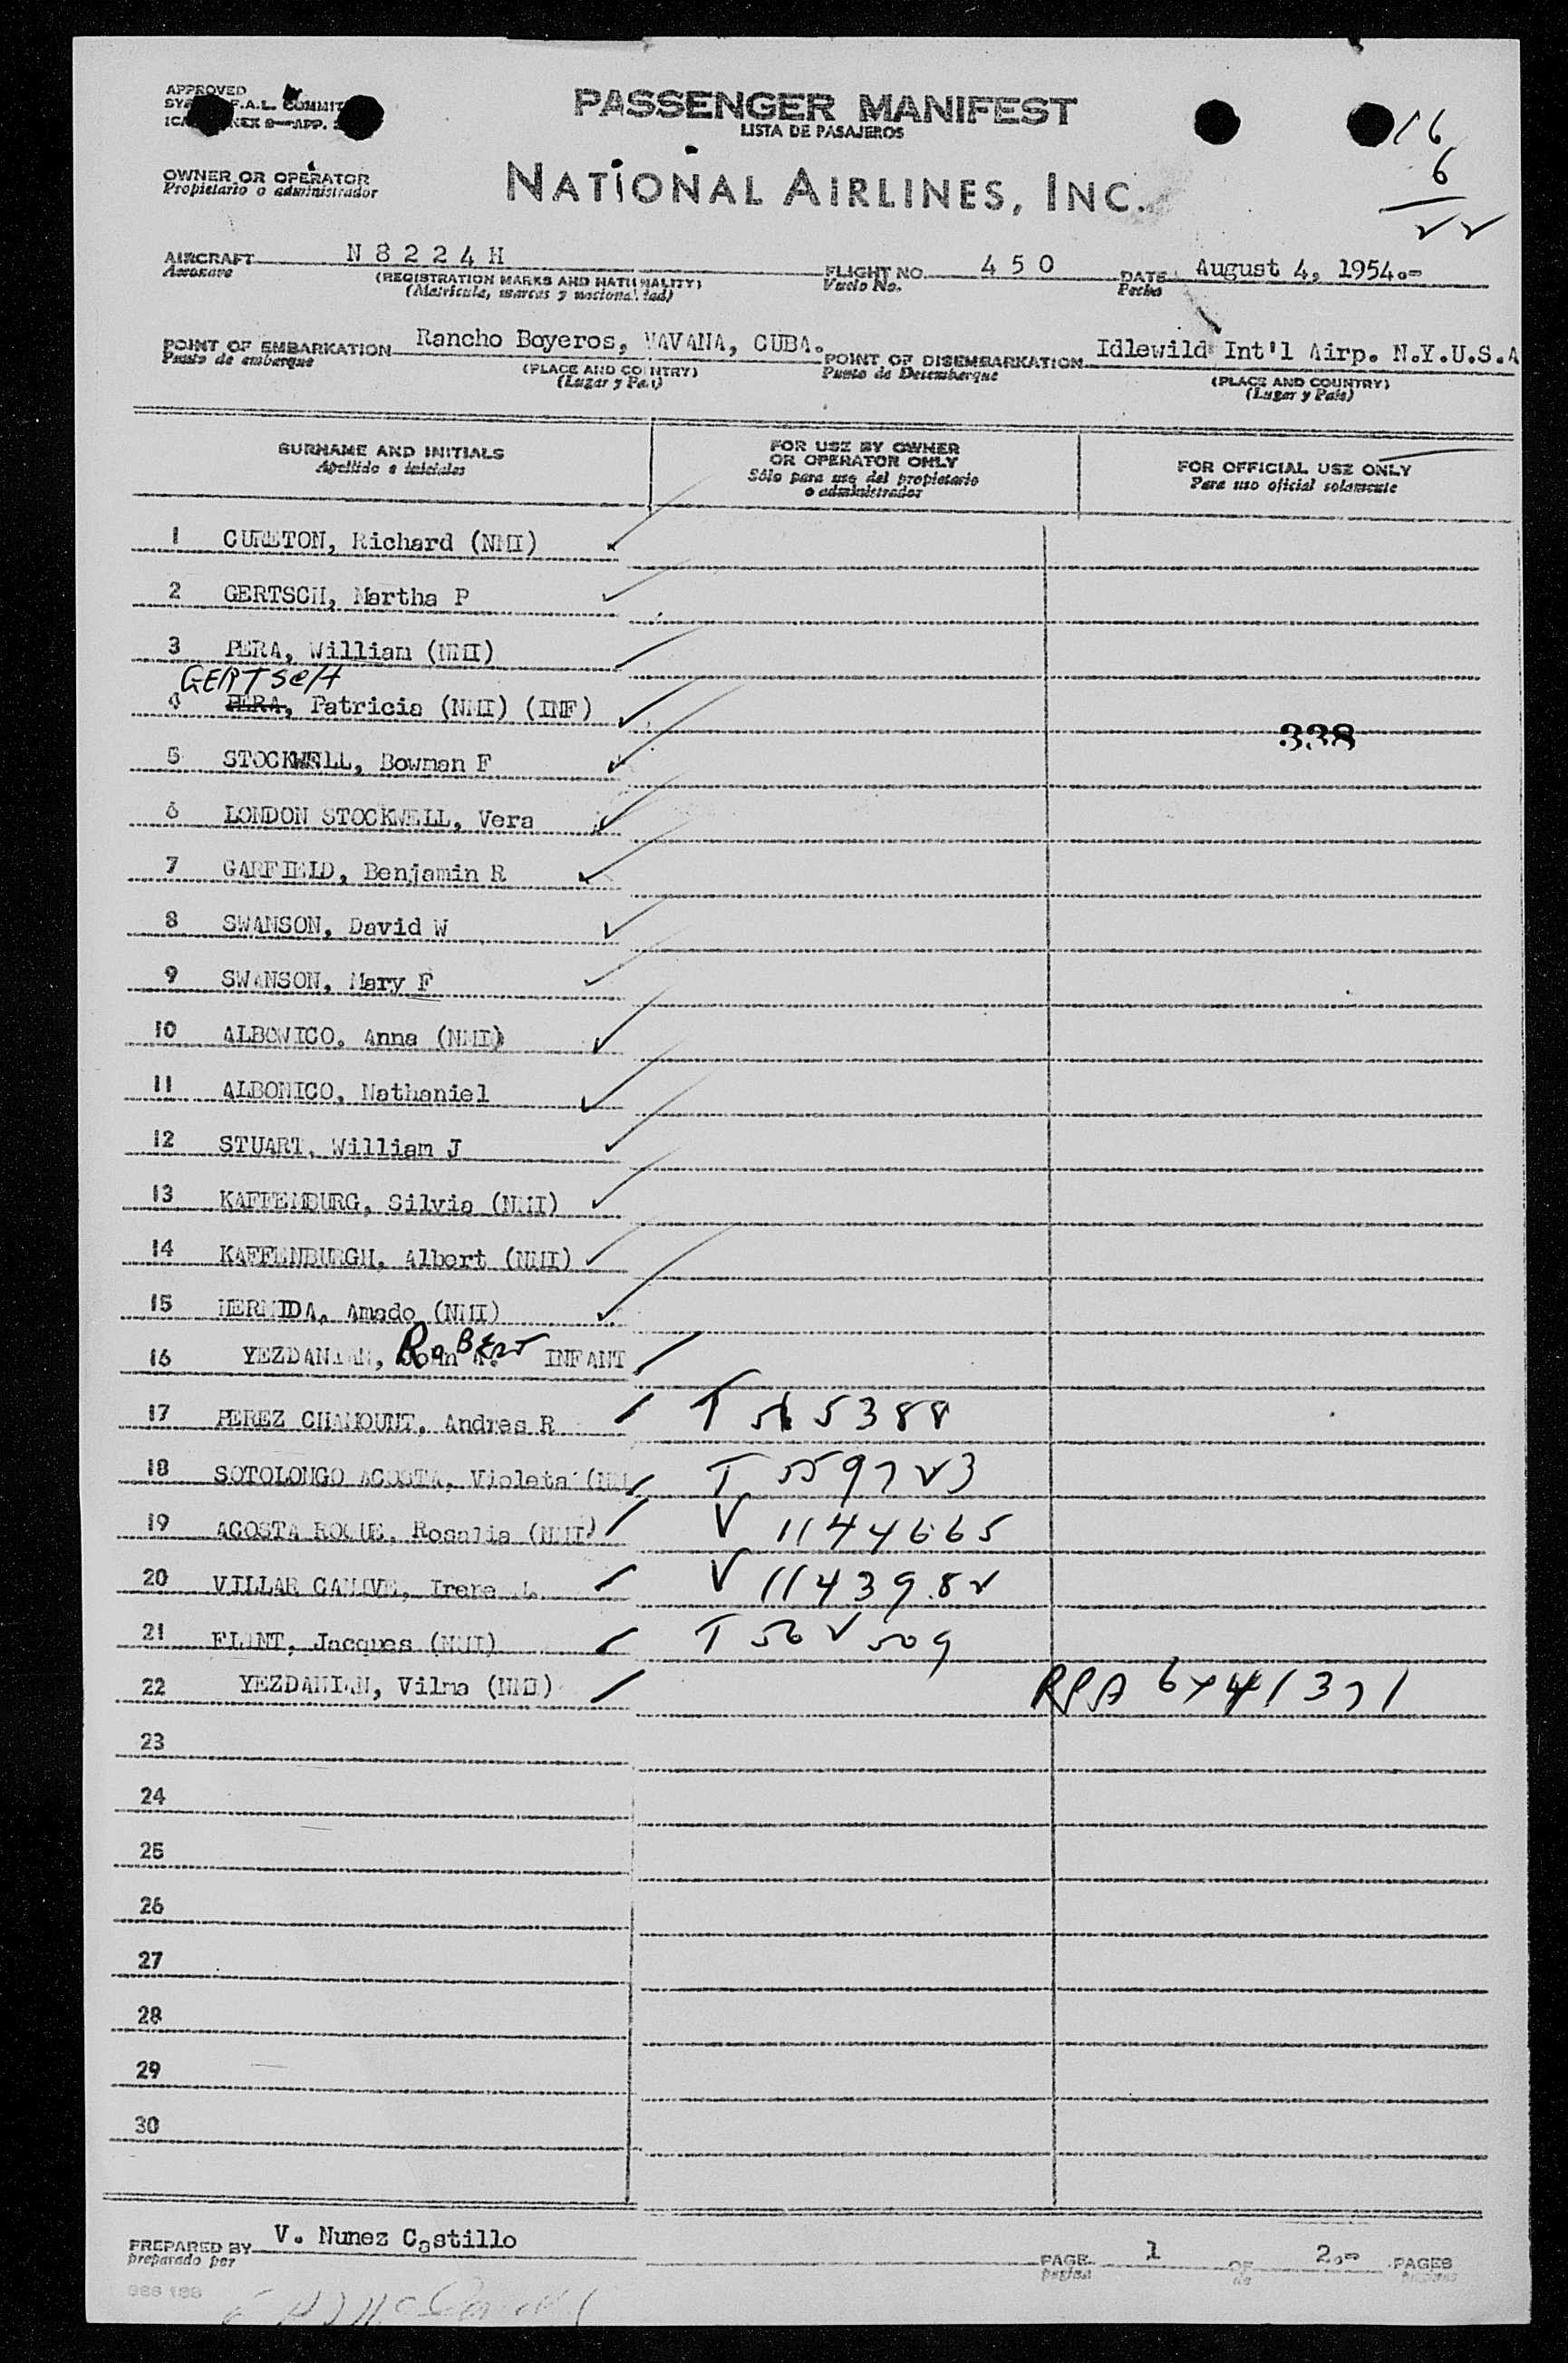 APPROVED
F.A.L. COMMIT
PASSENGER MANIFEST
LISTA DE PASAJEROS
16
6
22
OWNER OR OPERATOR
Propietario o administrador
NATIONAL AIRLINES, INC.
AIRCRAFT N 8 2 2 4 H FLIGHT NO. 4 5 0 DATE August 4, 1954.=
Aeronave (REGISTRATION MARKS AND NATIONALITY) Vuelo No. Fecha
(Matricula, marcas y nacionalidad)
POINT OF EMBARKATION Rancho Boyeros, VAVANA, CUBA. POINT OF DISEMBARKATION Idlewild Int'l Airp. N.Y.U.S.A
Punto de embarque (PLACE AND COUNTRY) Punto de Desembarque (PLACE AND COUNTRY)
(Lugar y Pais) (Lugar y Pais)
SURNAME AND INITIALS FOR USE BY OWNER OR OPERATOR ONLY FOR OFFICIAL USE ONLY
Apellido e iniciales Sólo para uso del propietario o administrador Para uso oficial solamente
1 CURETON, Richard (NMI)
2 GERTSCH, Martha P
3 PERA, William (NMI)
GERTSCH
4 PERA, Patricia (NMI) (INF)
338
5 STOCKWELL, Bowman F
6 LONDON STOCKWELL, Vera
7 GARFIELD, Benjamin R
8 SWANSON, David W
9 SWANSON, Mary F
10 ALBOWICO. Anna (NMI)
11 ALBONICO, Nathaniel
12 STUART, William J
13 KAFFENBURG, Silvia (NMI)
14 KAFFENBURGH, Albert (NMI)
15 HERMIDA, Amado (NMI)
16 YEZDANIAN, ROBERT INFANT
17 PEREZ CHAMOUNT, Andres R T 565388
18 SOTOLONGO ACOSTA, Violeta (NMI T 559723
19 ACOSTA ROQUE, Rosalia (NMI) V 1144665
20 VILLAR CANIVE, Irene V 1143982
21 FLINT, Jacques (NMI) T 562509
22 YEZDANIAN, Vilma (NMI) RPA
23
24
25
26
27
28
29
30
PREPARED BY V. Nunez Castillo PAGE 1 OF 2.= PAGES
preparado por pagina de paginas